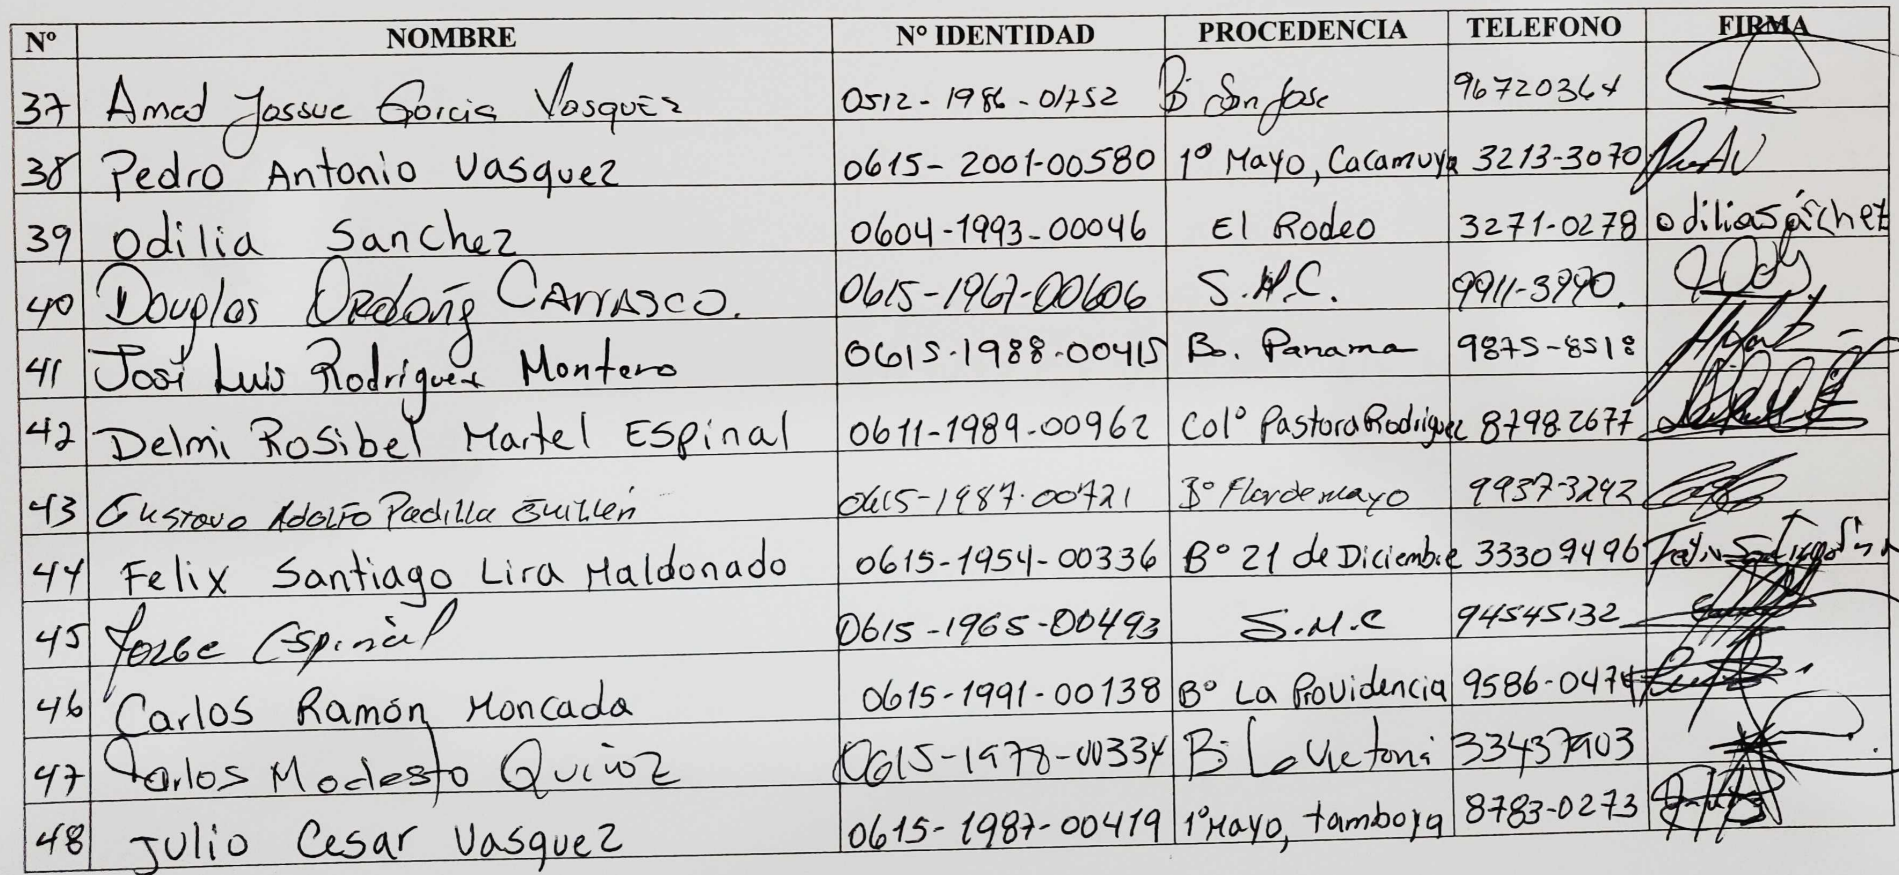 Nº NOMBRE Nº IDENTIDAD PROCEDENCIA TELEFONO FIRMA
37 Amad Jossue Garcia Vasquez 0512-1986-01752 B: San Jose 96720364
38 Pedro Antonio Vasquez 0615-2001-00580 1º Mayo, Cacamuya 3213-3070
39 Odilia Sanchez 0604-1993-00046 El Rodeo 3271-0278 Odilia Sánchez
40 Douglas Ordoñ Carrasco. 0615-1967-00606 S.M.C. 9911-3990.
41 José Luis Rodriguez Montero 0615-1988-00415 Bo. Panama 9875-8518
42 Delmi Rosibel Martel Espinal 0611-1989-00962 Colº Pastora Rodriguez 8798-2677
43 Gustavo Adolfo Padilla Guillén 0615-1987-00721 Bº Flor de mayo 9937-3242
44 Felix Santiago Lira Maldonado 0615-1954-00336 Bº 21 de Diciembre 33309496
45 Jorge Espinal 0615-1965-00493 S.M.C 94545132
46 Carlos Ramón Moncada 0615-1991-00138 Bº La Providencia 9586-0474
47 Carlos Modesto Quiroz 0615-1978-00334 B: La Victoria 33437903
48 Julio Cesar Vasquez 0615-1987-00419 1º Mayo, tamboya 8783-0273